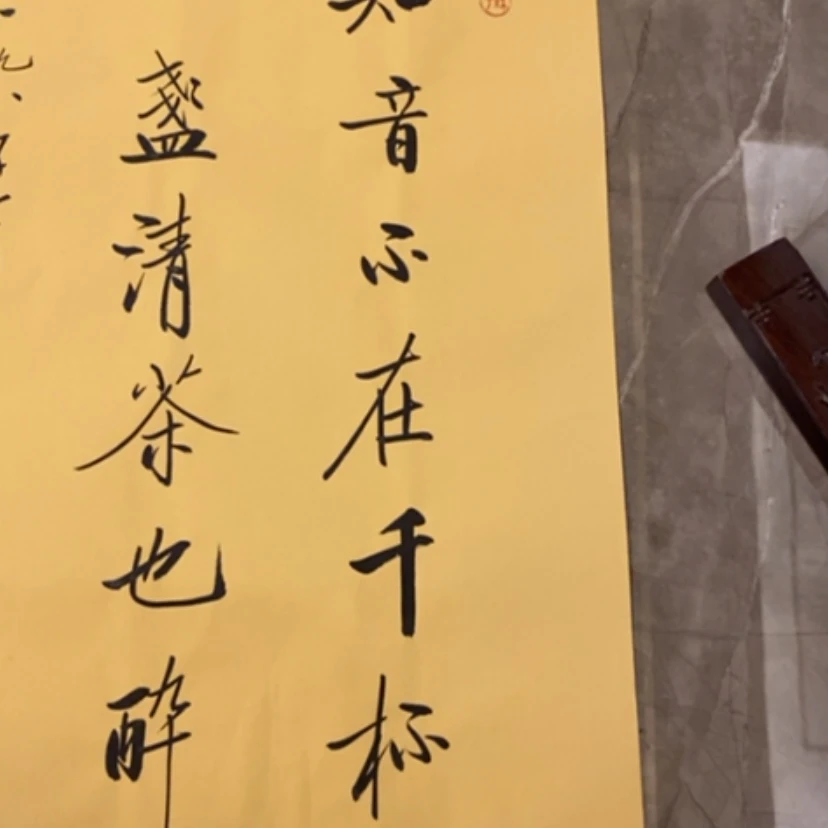 知音不在千杯
盏清茶也醉